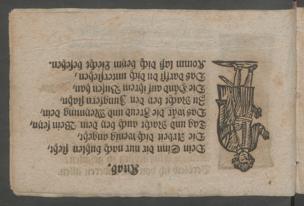 Knab.
Dein Sinn dir nur nach huslen steht,
Die Reben dich wenig angeht,
Tag und Nacht auch bey dem Wein seyn,
Das ist die Freud und Meynung dein,
Zu Nacht bey den Jungfern stahn,
Die Hand auf ihrem Busen han,
Das darffst du dich unterstehen,
Komm laß dich denn Liecht besehen.